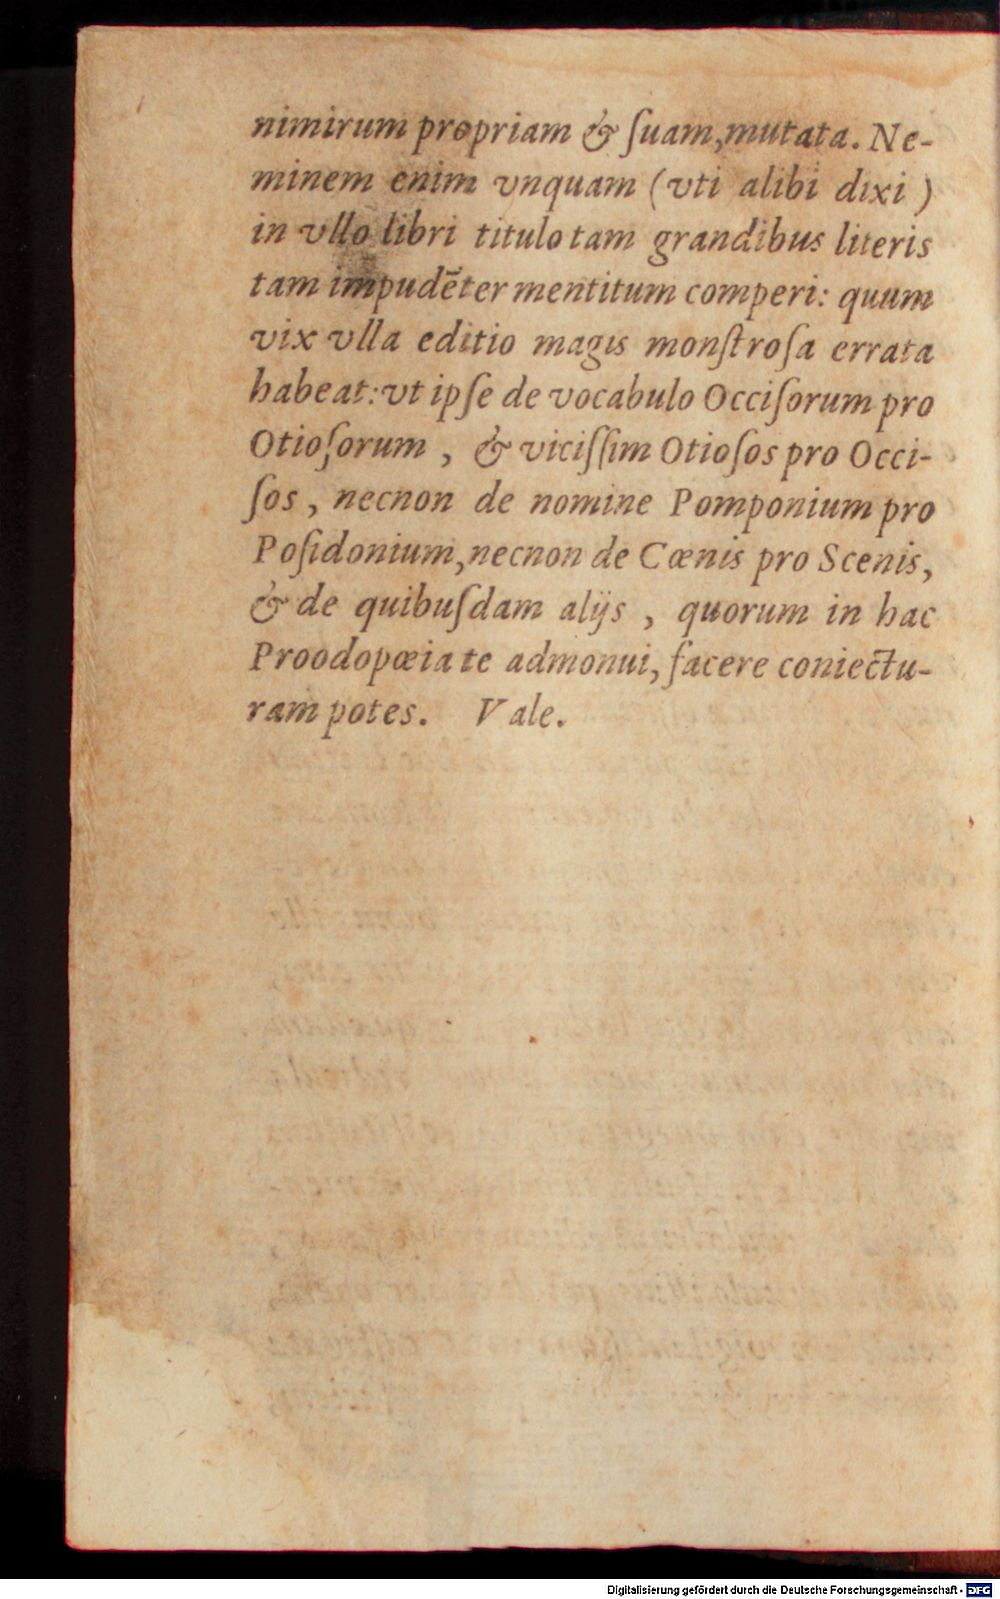 nimirum propriam & ſuam, mutata. Ne-
minem enim vnquam (vti alibi dixi)
in vllo libri titulo tam grandibus literis
tam impudēter mentitum comperi: quum
vix vlla editio magis monſtroſa errata
habeat: vt ipſe de vocabulo Occiſorum pro
Otioſorum, & viciſſim Otioſos pro Occi-
ſos, necnon de nomine Pomponium pro
Poſidonium, necnon de Cœnis pro Scenis,
& de quibuſdam alijs, quorum in hac
Proodopœia te admonui, facere coniectu-
ram potes. Vale.
Digitalisierung gefördert durch die Deutsche Forschungsgemeinschaft - DFG